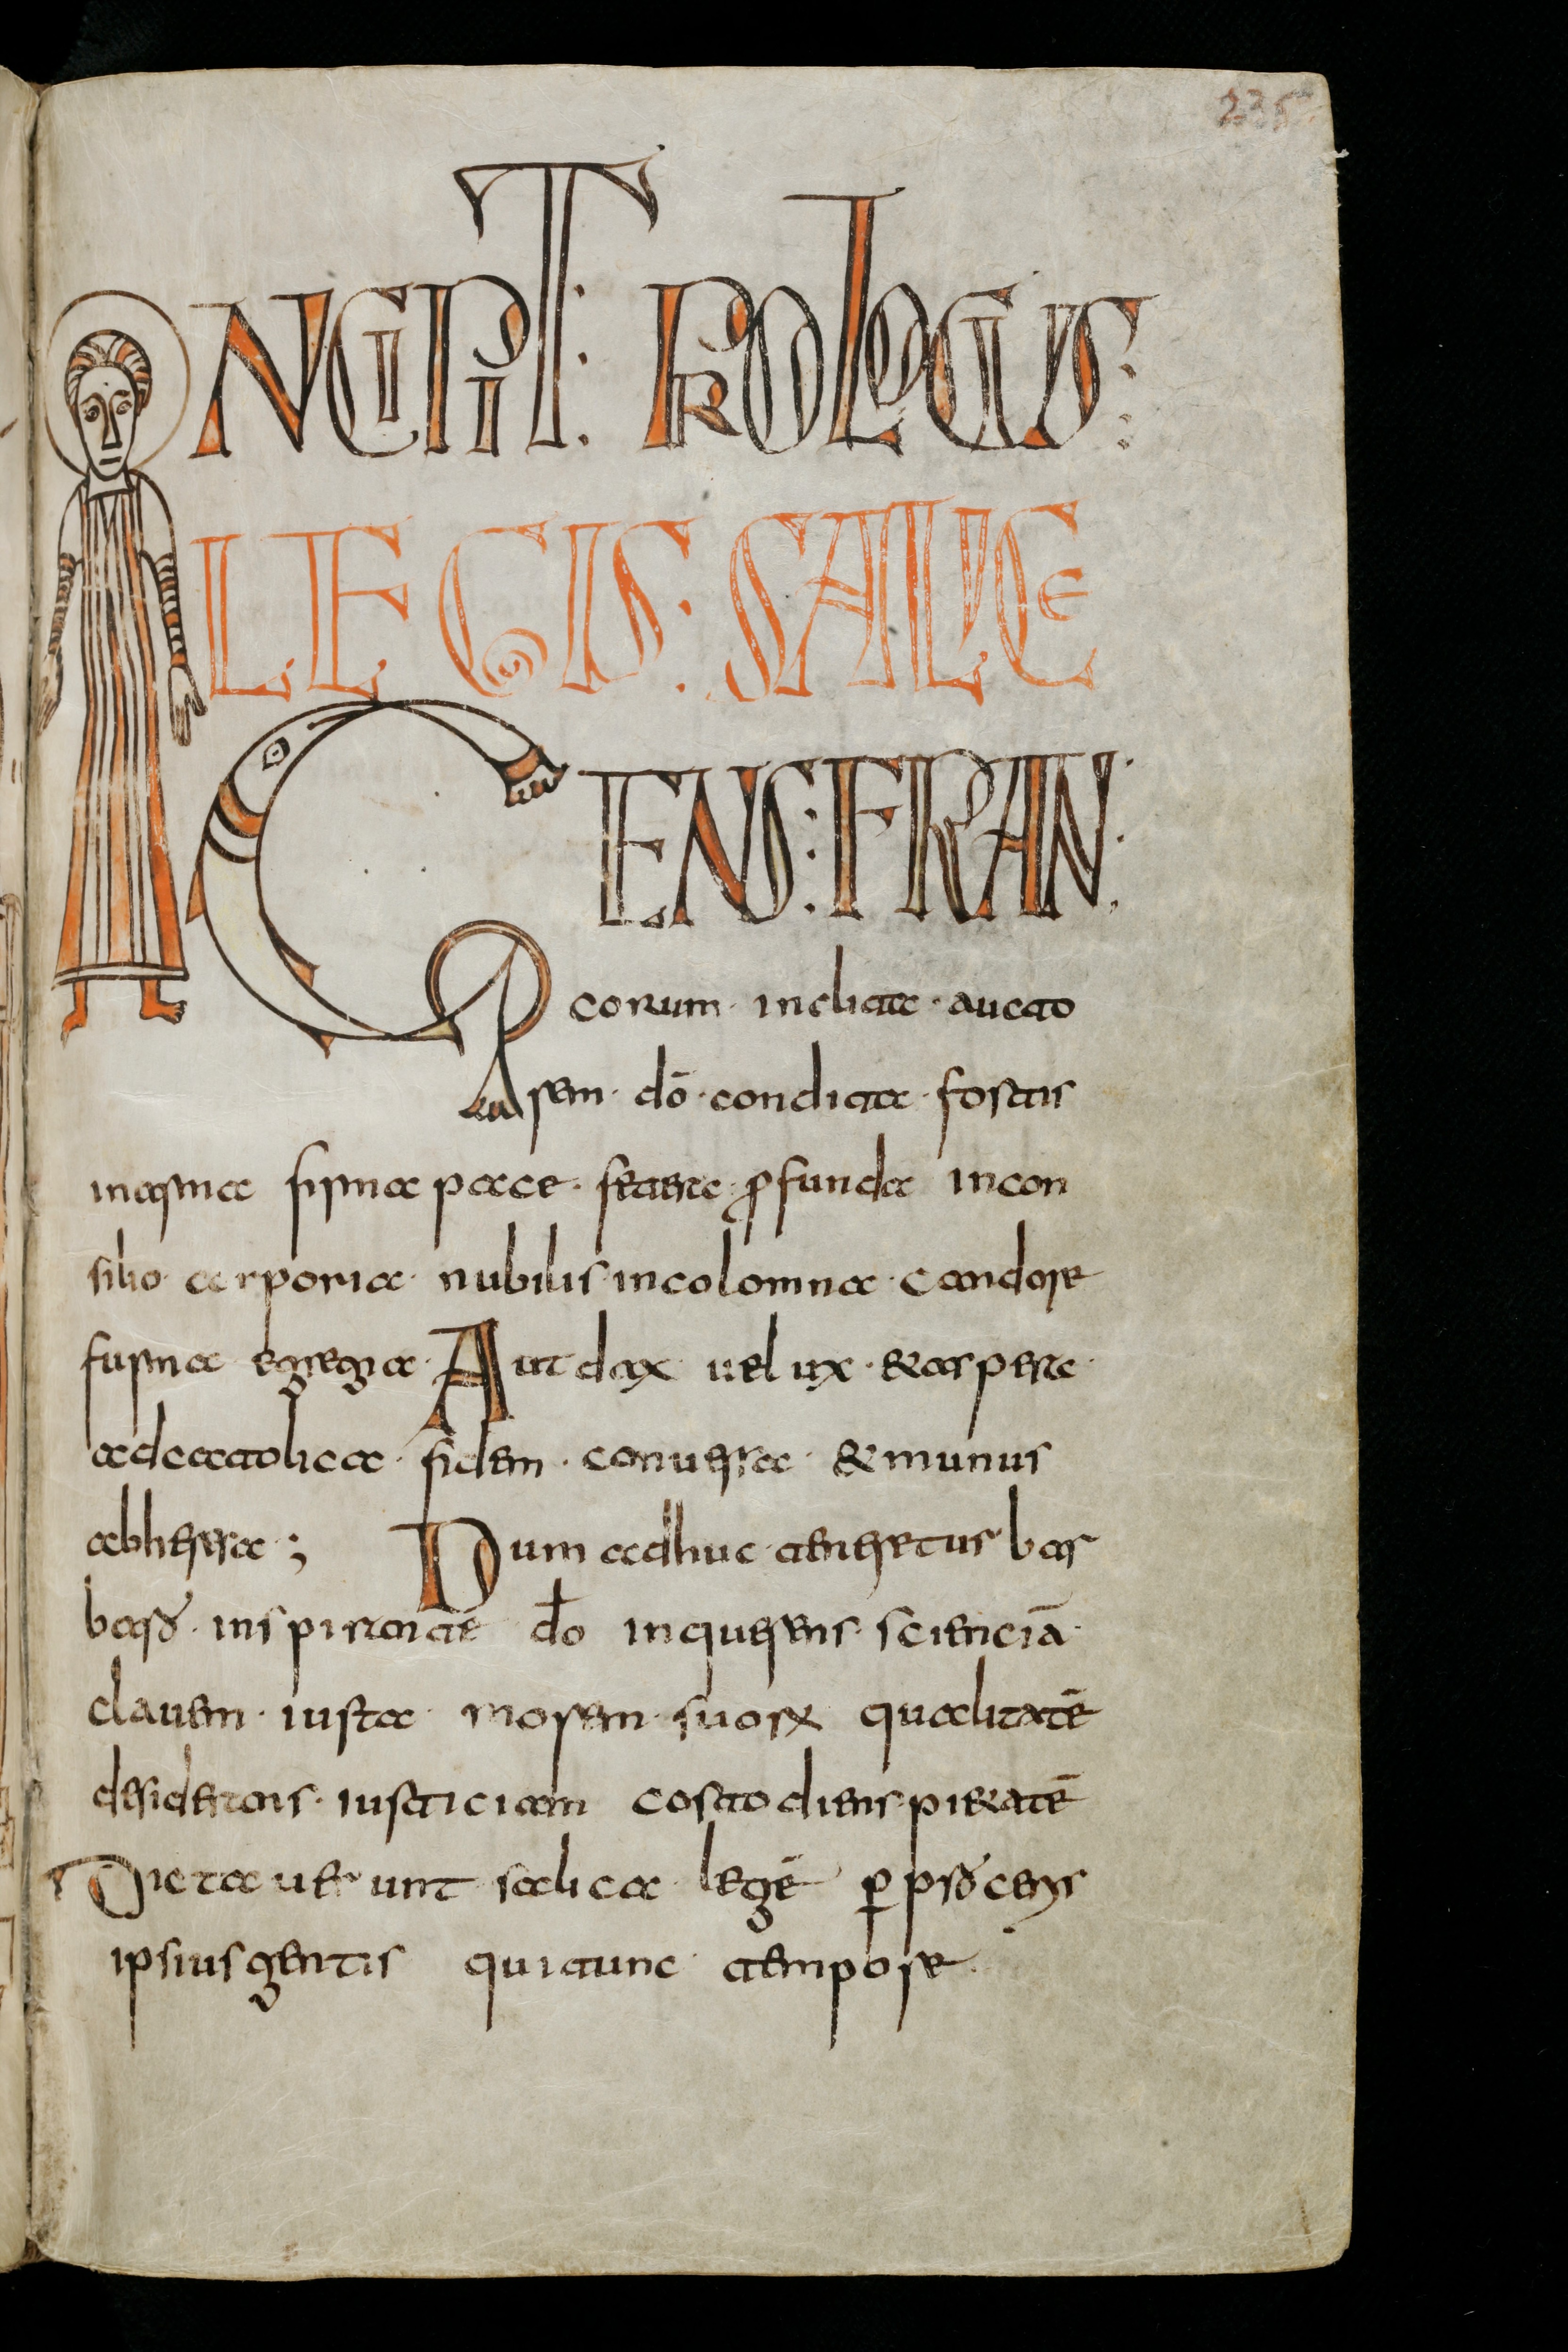 235
INCIPIT: PROLOGUS:
LEGIS: SALICE
GENS: FRAN.
corum · inclita · aucto
rem · dō · condita · fortis
inarma firma pace · fetera · ꝓfunda incon
silio · corporia · nubilis · incolomna · candore
furma egregia · Autdax uelux · &aspera ·
adcatolica · fidem · conuersa · &munus
abheresa ; Dum adhuc · teneretur bar
baro · inspirante dō inquerens · scienciā ·
clauem · iusta morem · suorum qualitatē
desiderans · iusticiam costodiens · pi&atē
Dictauerunt salica legē ꝑ proceris
ipsius gentis qui tunc tempore ·